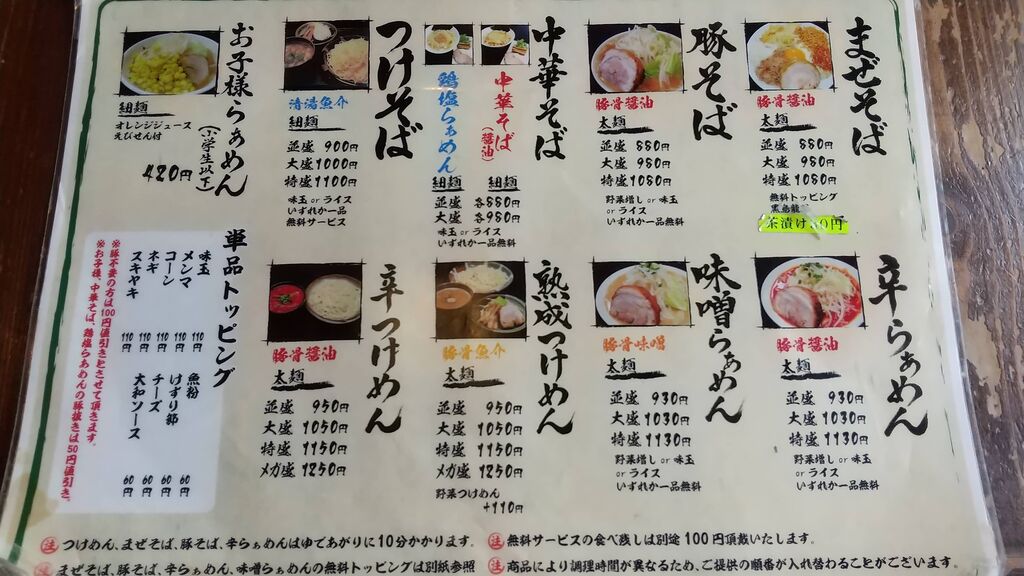 まぜそば
豚骨醤油
太麺
並盛 880円
大盛 980円
特盛 1080円
無料トッピング
茶漬け
豚そば
豚骨醤油
太麺
並盛 880円
大盛 980円
特盛 1080円
野菜増し or 味玉
or ライス
いずれか一品無料
中華そば
中華そば
(醤油)
細麺
鶏塩らぁめん
細麺
並盛 各880円
大盛 各980円
味玉 or ライス
いずれか一品無料
つけそば
清湯魚介
細麺
並盛 900円
大盛 1000円
特盛 1100円
味玉 or ライス
いずれか一品
無料サービス
お子様らぁめん
(小学生以下)
細麺
オレンジジュース
えびせん付
420円
辛らぁめん
豚骨醤油
太麺
並盛 930円
大盛 1030円
特盛 1130円
野菜増し or 味玉
or ライス
いずれか一品無料
味噌らぁめん
豚骨味噌
太麺
並盛 930円
大盛 1030円
特盛 1130円
野菜増し or 味玉
or ライス
いずれか一品無料
熟成つけめん
豚骨魚介
太麺
並盛 950円
大盛 1050円
特盛 1150円
メガ盛 1250円
野菜つけめん
+110円
辛つけめん
豚骨醤油
太麺
並盛 950円
大盛 1050円
特盛 1150円
メガ盛 1250円
単品トッピング
味玉 110円
メンマ 110円
コーン 110円
ネギ 110円
スキヤキ 110円
魚粉 60円
けずり節 60円
チーズ 60円
大和ソース 60円
※豚不要の方は100円値引きとさせて頂きます。
※お子様、中華そば、鶏塩らあめんの豚抜きは50円値引き。
注 つけめん、まぜそば、豚そば、辛らぁめんはゆであがりに10分かかります。
注 無料サービスの食べ残しは別途100円頂戴いたします。
注 まぜそば、豚そば、辛らぁめん、味噌らぁめんの無料トッピングは別紙参照
注 商品により調理時間が異なるため、ご提供の順番が入れ替わることがございます。